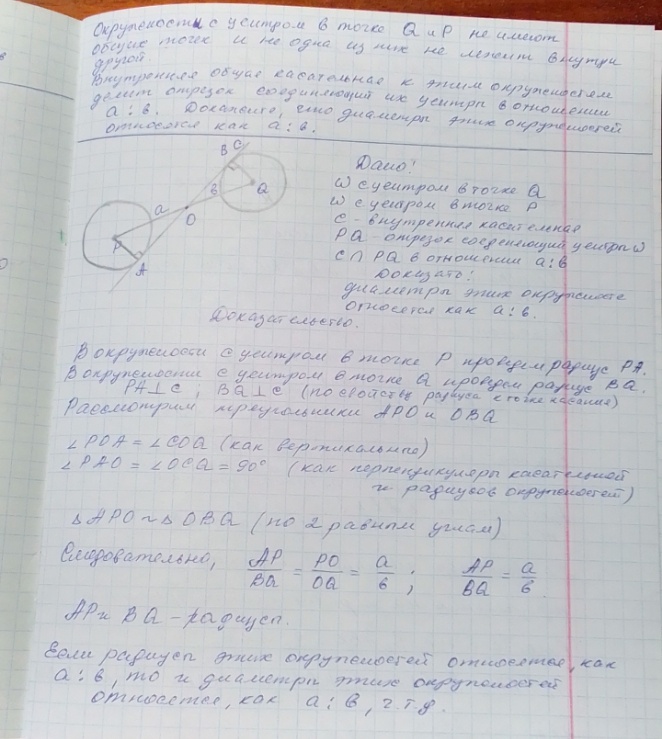 Окружности с центром в точке Q и P не имеют
общих точек и не одна из них не лежит внутри
другой.
Внутренняя общая касательная к этим окружностям
делит отрезок соединяющий их центры в отношении
a : b. Докажите, что диаметры этих окружностей
относятся как a : b.
B C
b
Q
a
O
P
A
Дано:
ω с центром в точке Q
ω с центром в точке P
c - внутренняя касательная
PQ - отрезок соеденяющий центры ω
c ∩ PQ в отношении a : b
Доказать:
диаметры этих окружносте
относятся как a : b.
Доказательство.
В окружности с центром в точке P проведем радиус PA.
В окружности с центром в точке Q проведем радиус BQ.
PA ⊥ c ; BQ ⊥ c (по свойству радиуса к точке касания)
Рассмотрим треугольники APO и OBQ
∠POA = ∠COQ (как вертикальные)
∠PAO = ∠OCQ = 90° (как перпендикуляры касательной
и радиусов окружностей)
△APO ~ △OBQ (по 2 равным углам)
Следовательно, AP/BQ = PO/OQ = a/b ; AP/BQ = a/b
AP и BQ - радиусы.
Если радиусы этих окружностей относятся, как
a : b, то и диаметры этих окружностей
относятся, как a : b, ч.т.д.